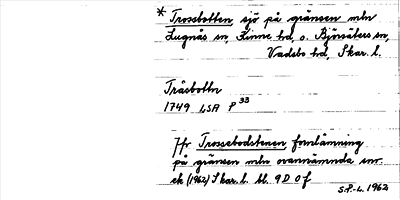 * Trossbotten sjö på gränsen mln
Lugnås sn, Kinne hd, o. Björsäters sn,
Vadsbo hd, Skar. l.
Träsbottn
1749 LSA P 33
Jfr Trossebodstenen fornlämning
på gränsen mln ovannämnda snr.
ek (1962) Skar. l. bl. 9 D 0 f
S.P.-L. 1962